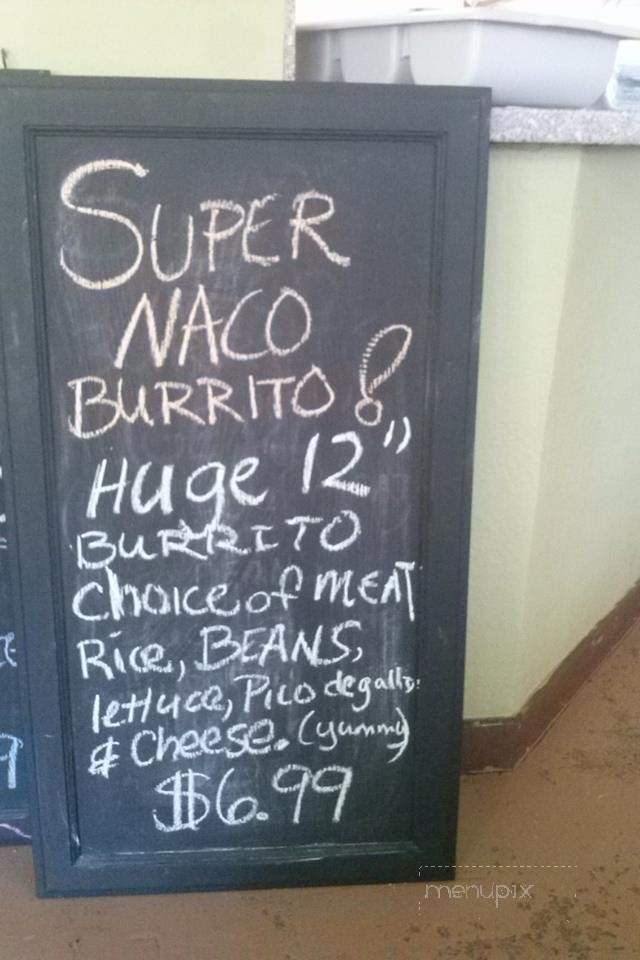 SUPER
NACO
BURRITO!
Huge 12"
BURRITO
choice of MEAT
Rice, BEANS,
lettuce, Pico degallo,
& Cheese. (yummy)
$6.99
menupix